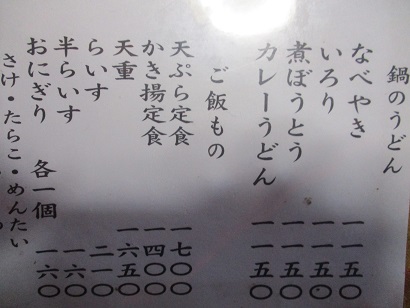 鍋のうどん
なべやき 一一五〇
いろり 一一五〇
煮ぼうとう 一一五〇
カレーうどん 一一五〇
ご飯もの
天ぷら定食 一七〇〇
かき揚定食 一四〇〇
天重 一六五〇
らいす 二一〇
半らいす 一六〇
おにぎり 各一個 一六〇
さけ・たらこ・めんたい